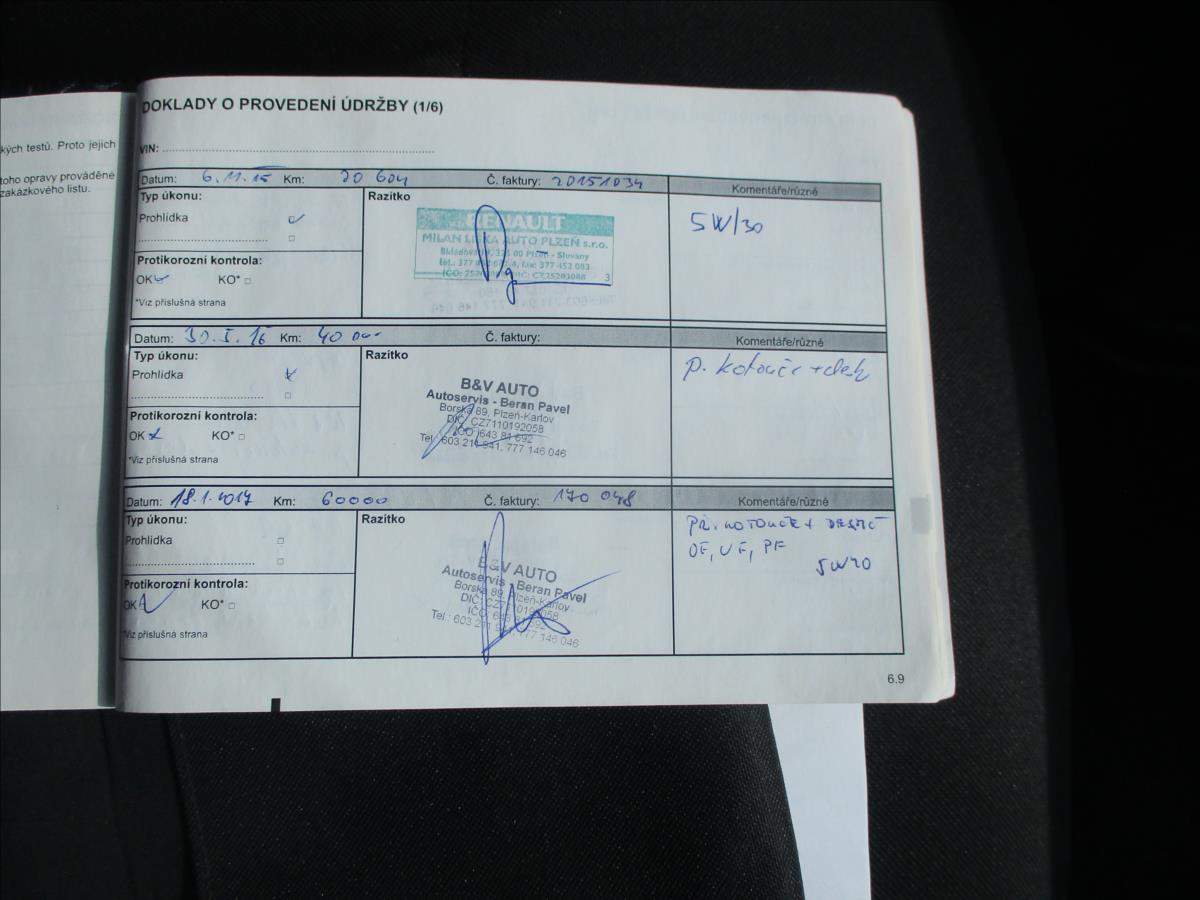 kých testů. Proto jejich
toho opravy prováděné
zakázkového listu.
DOKLADY O PROVEDENÍ ÚDRŽBY (1/6)
VIN:
Datum: 6.11.15 Km: 20 604 Č. faktury: 20151034 Komentáře/různé
Typ úkonu: Razítko
Prohlídka
5W/30
RENAULT
MILAN AUTO PLZEŇ s.r.o.
Plzeň - Slovany
fax: 377 452 003
3
Protikorozní kontrola:
OK KO*
*Viz příslušná strana
Datum: Km: 40 000 Č. faktury: Komentáře/různé
Typ úkonu: Razítko
Prohlídka
p. kotouče +
B&V AUTO
Autoservis - Beran Pavel
Borská 89, Plzeň-Karlov
DIČ: CZ7110192058
IČO: 643 81 692
Tel.: 603 211 941, 777 146 046
Protikorozní kontrola:
OK KO*
*Viz příslušná strana
Datum: 18.1.2017 Km: 60000 Č. faktury: 170 048 Komentáře/různé
Typ úkonu: Razítko
Prohlídka
PŘ. KOTOUČE +
OF, VF, PF
B&V AUTO
Autoservis - Beran Pavel
Borská 89, Plzeň-Karlov
DIČ: CZ7110192058
Tel.: 603 211 941, 777 146 046
Protikorozní kontrola:
OK KO*
*Viz příslušná strana
6.9